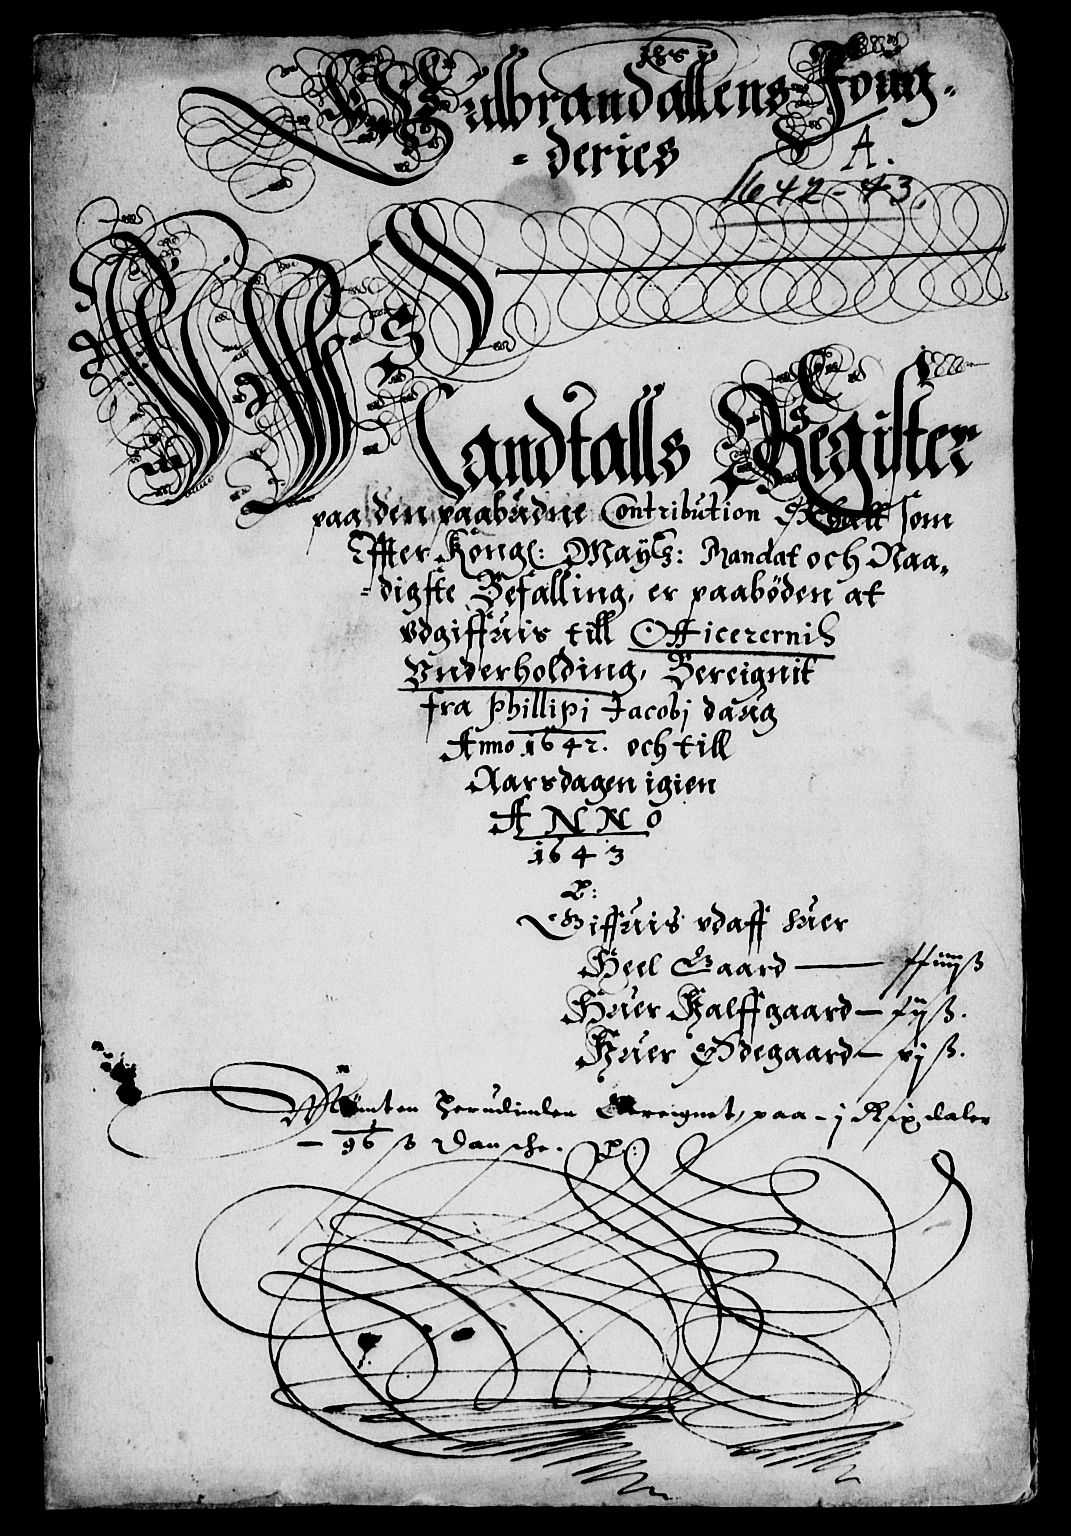 Gulbrandallens Foug-
-deries
A.
1642-43.
Mandtalls Register
paa den paabudne Contribution Schatt som
Effter Kongl: Mayts: Mandat och Naa-
-digste Befalling, er paaböden at
vdgiffuis till Officerernis
Vnderholding, Bereignit
fra Phillipi Jacobj daug
Anno 1642. och till
Aarsdagen igien
ANNO
1643
Giffuis vdaff huer
Heel Gaard
Huer Halffgaard
Huer Ödegaard — vj ß.
Mÿnten herudinden Bereignet, paa - j Rixdaler
- 96 ß Dansche.